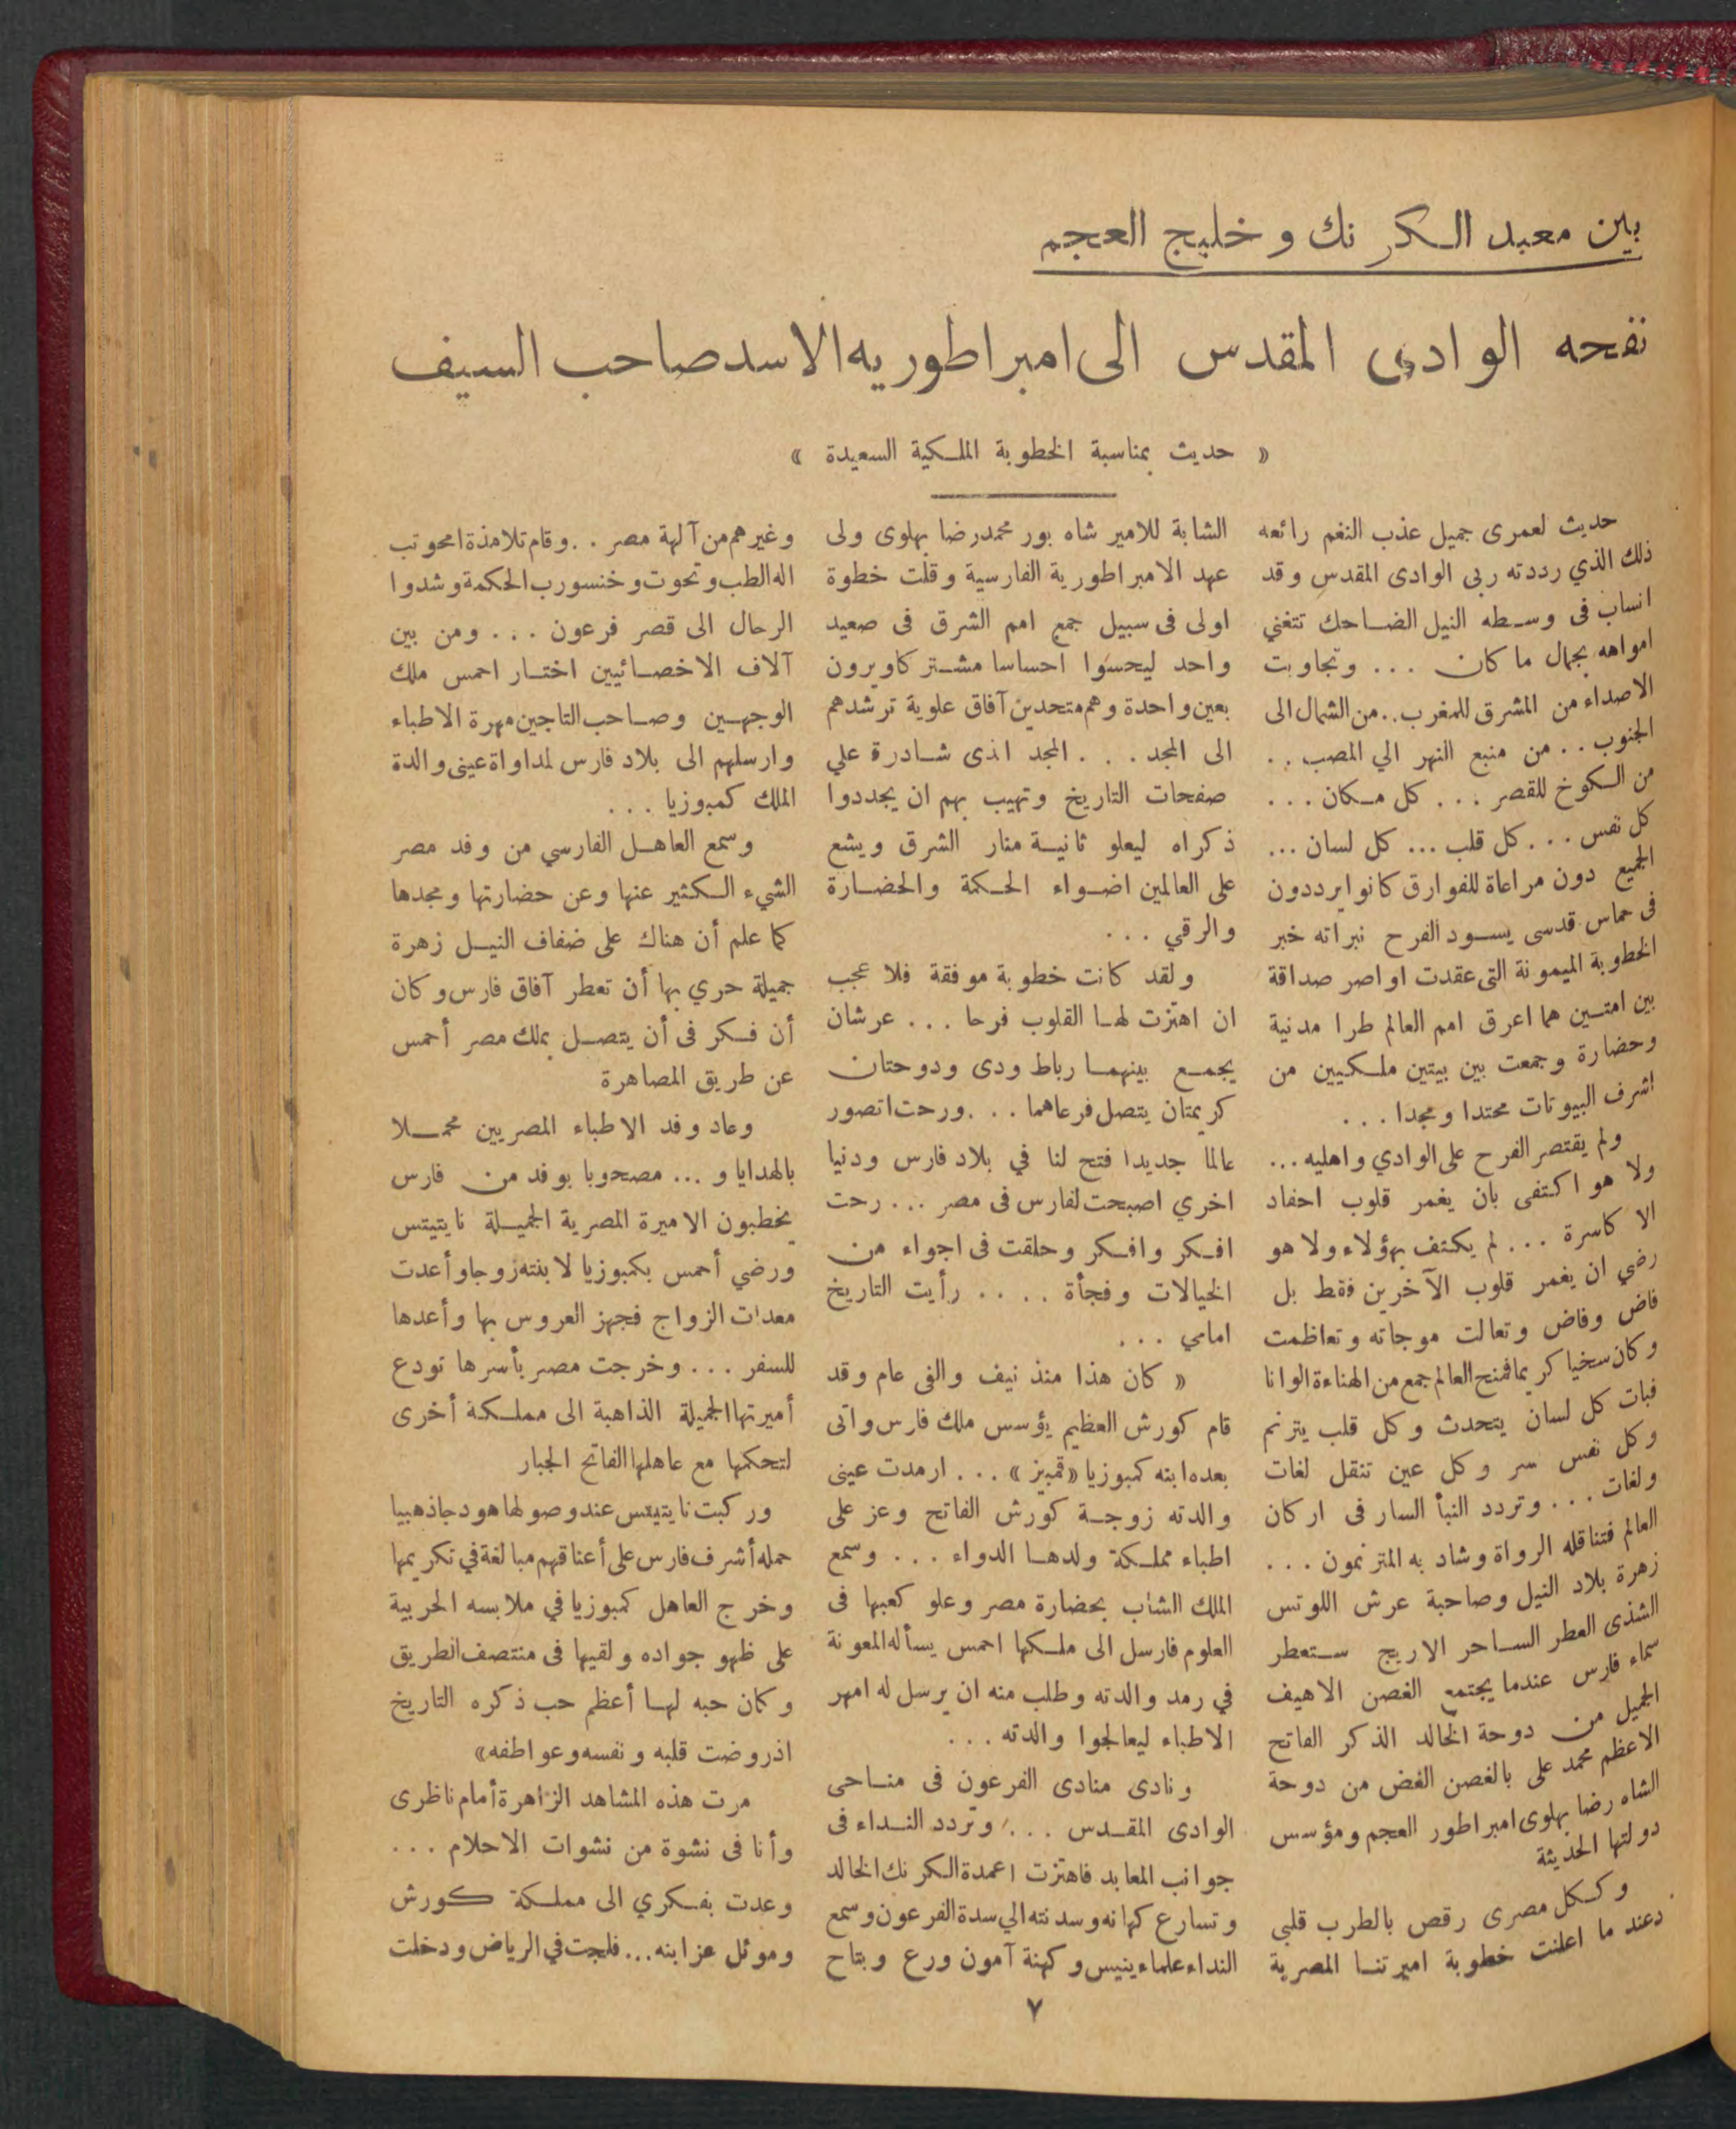 بين معبد الكرنك وخليج العجم
نفحه الوادى المقدس الى امبراطوريه الاسد صاحب السيف
« حديث بمناسبة الخطوبة الملكية السعيدة »
حديث لعمرى جميل عذب النغم رائعه
ذلك الذي رددته ربى الوادى المقدس وقد
انساب فى وسطه النيل الضاحك تتغني
امواهه بجمال ما كان ... وتجاوبت
الاصداء من المشرق للمغرب .. من الشمال الى
الجنوب .. من منبع النهر الي المصب ..
من الكوخ للقصر ... كل مكان ...
كل نفس ... كل قلب ... كل لسان ...
الجميع دون مراعاة للفوارق كانوا يرددون
فى حماس قدسى يسود الفرح نبراته خبر
الخطوبة الميمونة التى عقدت اواصر صداقة
بين امتين هما اعرق امم العالم طرا مدنية
وحضارة وجمعت بين بيتين ملكيين من
اشرف البيوتات محتدا ومجدا ...
ولم يقتصر الفرح على الوادي واهليه ...
ولا هو اكتفى بان يغمر قلوب احفاد
الاكاسرة ... لم يكتف بهؤلاء ولا هو
رضي ان يغمر قلوب الآخرين فقط بل
فاض وفاض وتعالت موجاته وتعاظمت
وكان سخيا كريما فمنح العالم جمع من الهناءة الوانا
فبات كل لسان يتحدث وكل قلب يترنم
وكل نفس سر وكل عين تنقل لغات
ولغات ... وتردد النبأ السار فى اركان
العالم فتناقله الرواة وشاد به المترنمون ...
زهرة بلاد النيل وصاحبة عرش اللوتس
الشذى العطر الساحر الاريج ستعطر
سماء فارس عندما يجتمع الغصن الاهيف
الجميل من دوحة الخالد الذكر الفاتح
الاعظم محمد على بالغصن الغض من دوحة
الشاه رضا بهلوى امبراطور العجم ومؤسس
دولتها الحديثة
وككل مصرى رقص بالطرب قلبي
دعند ما اعلنت خطوبة اميرتنا المصرية
الشابة للامير شاه بور محمد رضا بهلوى ولى
عهد الامبراطورية الفارسية وقلت خطوة
اولى فى سبيل جمع امم الشرق فى صعيد
واحد ليحسوا احساسا مشتركا ويرون
بعين واحدة وهم متحدين آفاق علوية ترشدهم
الى المجد ... المجد الذى شادرة علي
صفحات التاريخ وتهيب بهم ان يجددوا
ذكراه ليعلو ثانية منار الشرق ويشع
على العالمين اضواء الحكمة والحضارة
والرقي ...
ولقد كانت خطوبة موفقة فلا عجب
ان اهتزت لها القلوب فرحا ... عرشان
يجمع بينهما رباط ودى ودوحتان
كريمتان يتصل فرعاهما ... ورحت اتصور
عالما جديدا فتح لنا في بلاد فارس ودنيا
اخري اصبحت لفارس فى مصر ... رحت
افكر وافكر وحلقت فى اجواء من
الخيالات وفجأة .... رأيت التاريخ
امامي ...
« كان هذا منذ نيف والفى عام وقد
قام كورش العظيم يؤسس ملك فارس واتى
بعده ابنه كمبوزيا «قمبيز» ... ارمدت عينى
والدته زوجة كورش الفاتح وعز على
اطباء مملكة ولدها الدواء ... وسمع
الملك الشاب بحضارة مصر وعلو كعبها فى
العلوم فارسل الى ملكها احمس يسأله المعونة
في رمد والدته وطلب منه ان يرسل له امهر
الاطباء ليعالجوا والدته ...
ونادى منادى الفرعون فى مناحى
الوادى المقدس ... وتردد النداء فى
جوانب المعابد فاهتزت اعمدة الكرنك الخالد
وتسارع كهانه وسدنته الي سدة الفرعون وسمع
النداء علماء ينيس وكهنة آمون ورع وبتاح
وغيرهم من آلهة مصر .. وقام تلامذة امحوتب
اله الطب وتحوت وخنسو رب الحكمة وشدوا
الرحال الى قصر فرعون ... ومن بين
آلاف الاخصائيين اختار احمس ملك
الوجهين وصاحب التاجين مهرة الاطباء
وارسلهم الى بلاد فارس لمداواة عينى والدة
الملك كمبوزيا ...
وسمع العاهل الفارسي من وفد مصر
الشيء الكثير عنها وعن حضارتها ومجدها
كما علم أن هناك على ضفاف النيل زهرة
جميلة حري بها أن تعطر آفاق فارس وكان
أن فكر فى أن يتصل بملك مصر أحمس
عن طريق المصاهرة
وعاد وفد الاطباء المصريين محملا
بالهدايا و ... مصحوبا بوفد من فارس
يخطبون الاميرة المصرية الجميلة نايتيتس
ورضي أحمس بكمبوزيا لابنته زوجا وأعدت
معدات الزواج فجهز العروس بها وأعدها
للسفر ... وخرجت مصر بأسرها تودع
أميرتها الجميلة الذاهبة الى مملكة أخرى
لتحكمها مع عاهلها الفاتح الجبار
وركبت نايتيتس عند وصولها هودجا ذهبيا
حمله أشرف فارس على أعناقهم مبالغة في تكريمها
وخرج العاهل كمبوزيا في ملابسه الحربية
على ظهو جواده ولقيها فى منتصف الطريق
وكان حبه لها أعظم حب ذكره التاريخ
اذ روضت قلبه ونفسه وعواطفه»
مرت هذه المشاهد الزاهرة أمام ناظرى
وأنا فى نشوة من نشوات الاحلام ...
وعدت بفكري الى مملكة كورش
وموئل عز ابنه ... فلجت في الرياض ودخلت
٧